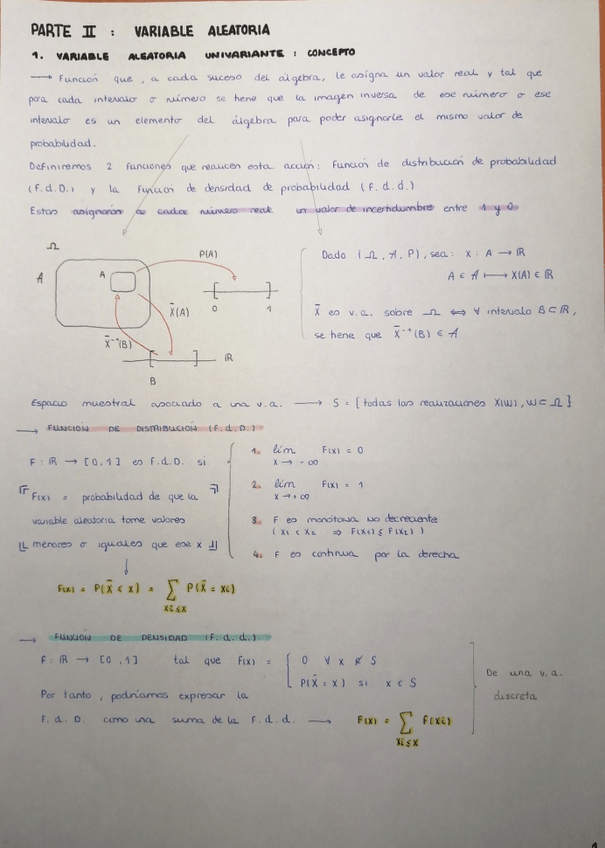 PARTE II : VARIABLE ALEATORIA
1. VARIABLE ALEATORIA UNIVARIANTE : CONCEPTO
⟶ Función que, a cada suceso del álgebra, le asigna un valor real y tal que
para cada intervalo o número se tiene que la imagen inversa de ese número o ese
intervalo es un elemento del álgebra para poder asignarle el mismo valor de
probabilidad.
Definiremos 2 funciones que realicen esta acción: Función de distribución de probabilidad
(F.d.D.) y la Función de densidad de probabilidad (F.d.d.)
Estas asignarán a cada número real un valor de incertidumbre entre 1 y 0
Ω
A
A
P(A)
0 1
X̄(A)
X̄⁻¹(B)
ℝ
B
Dado (Ω, A, P), sea: X : A → ℝ
A ∈ A ⟼ X(A) ∈ ℝ
X̄ es v.a. sobre Ω ⇔ ∀ intervalo B ⊂ ℝ,
se tiene que X̄⁻¹(B) ∈ A
Espacio muestral asociado a una v.a. ⟶ S = {todas las realizaciones X(w), w ⊂ Ω}
⟶ FUNCIÓN DE DISTRIBUCIÓN (F.d.D.)
F : ℝ → [0,1] es F.d.D. si
1. lím F(x) = 0
x → -∞
2. lím F(x) = 1
x → +∞
3. F es monótona no decreciente
(x₁ < x₂ ⇒ F(x₁) ≤ F(x₂))
4. F es continua por la derecha
F(x) = probabilidad de que la
variable aleatoria tome valores
menores o iguales que ese x
F(x) = P(X̄ ≤ x) = ∑ P(X̄ = xi)
xi≤x
⟶ FUNCIÓN DE DENSIDAD (F.d.d.)
F : ℝ → [0,1] tal que F(x) = { 0 ∀ x ∉ S
P(X̄ = x) si x ∈ S
De una v.a.
discreta
Por tanto, podríamos expresar la
F.d.D. como una suma de la F.d.d. ⟶ F(x) = ∑ F(xi)
xi≤x